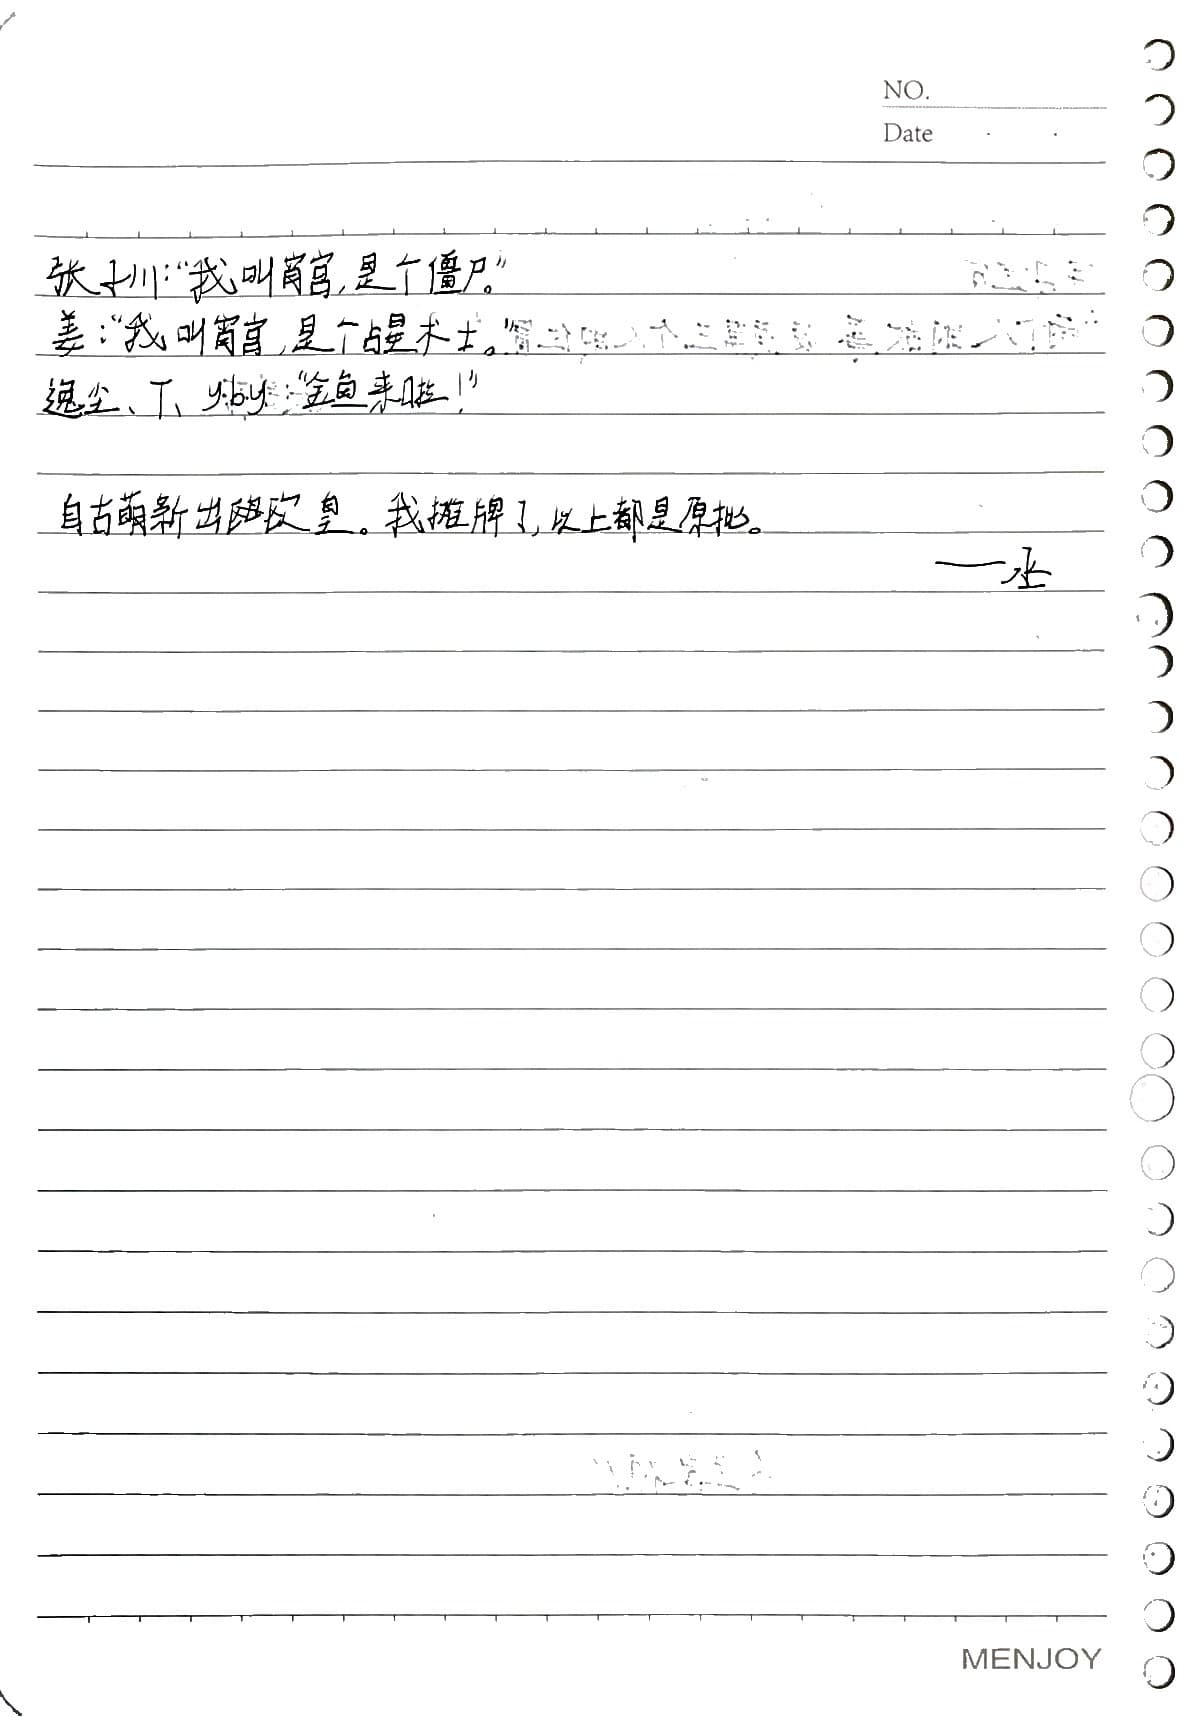 NO.
Date
张子川：“我叫宵宫，是个僵尸。”
姜：“我叫宵宫，是个占星术士。”
逸尘、丁、y.b.y：“金鱼来啦！”
自古萌新出欧皇。我摊牌了，以上都是原批。
——丞
MENJOY